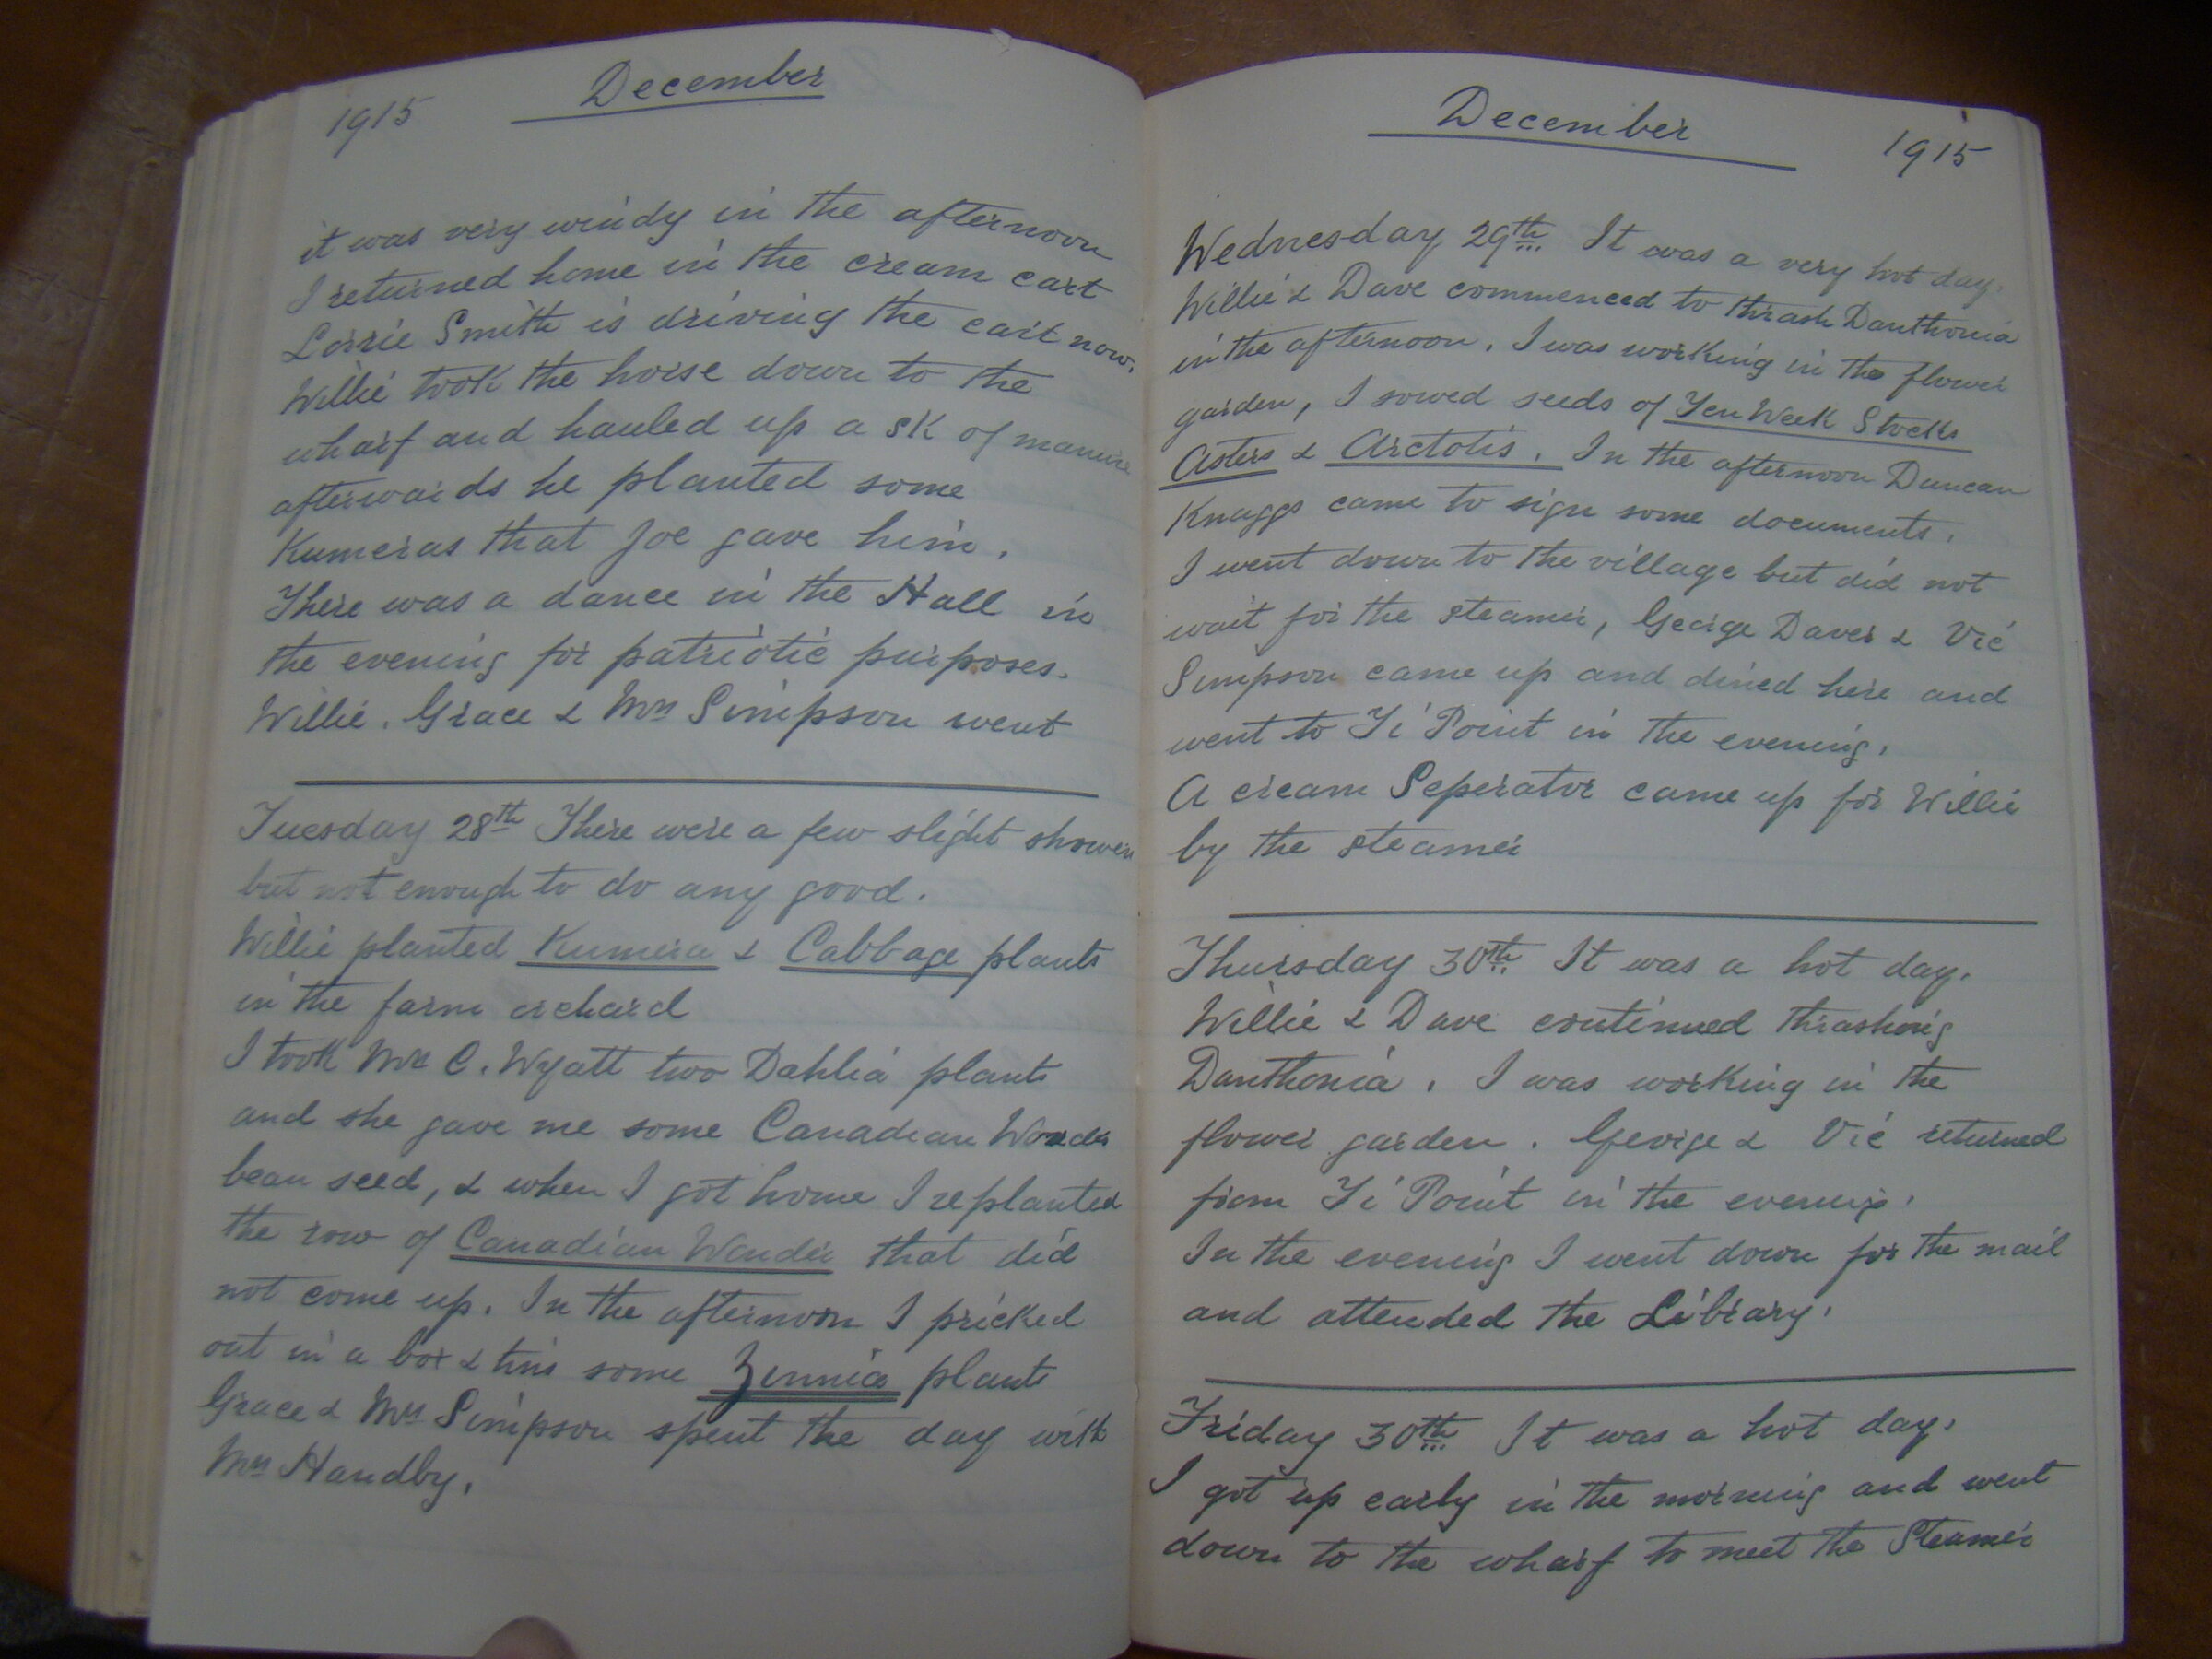 1915 December
it was very windy in the afternoon
I returned home in the cream cart
Lorrie Smith is driving the cart now.
Willie took the horse down to the
wharf and hauled up a sk of manure
afterwards he planted some
Kumeras that Joe gave him.
There was a dance in the Hall in
the evening for patriotic purposes.
Willie. Grace & Mrs Simpson went
Tuesday 28th There were a few slight showers
but not enough to do any good.
Willie planted Kumera & Cabbage plants
in the farm orchard
I took Mrs C. Wyatt two Dahlia plants
and she gave me some Canadian Wonder
bean seed, & when I got home I replanted
the row of Canadian Wonder that did
not come up. In the afternoon I pricked
out in a box & tins some Zennia plants
Grace & Mrs Simpson spent the day with
Mrs Handby.
December 1915
Wednesday 29th It was a very hot day.
Willie & Dave commenced to thrash Danthonia
in the afternoon. I was working in the flower
garden, I sowed seeds of Ten Week Stocks
Asters & Arctotis. In the afternoon Duncan
Knaggs came to sign some documents.
I went down to the village but did not
wait for the steamer, George Daves & Vic
Simpson came up and dined here and
went to Ti Point in the evening.
A cream Seperator came up for Willie
by the steamer
Thursday 30th It was a hot day.
Willie & Dave continued thrashing
Danthonia. I was working in the
flower garden. George & Vic returned
from Ti Point in the evening.
In the evening I went down for the mail
and attended the Library.
Friday 30th It was a hot day.
I got up early in the morning and went
down to the wharf to meet the Steamer